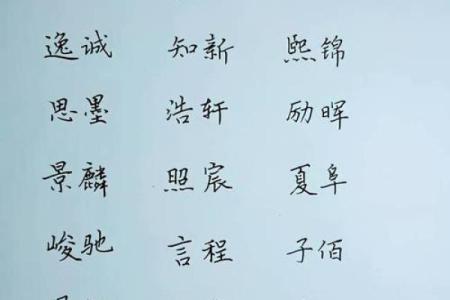 逸诚 知新 熙锦
思墨 浩轩 励晖
景麟 照宸 夏阜
峻驰 言程 子佰